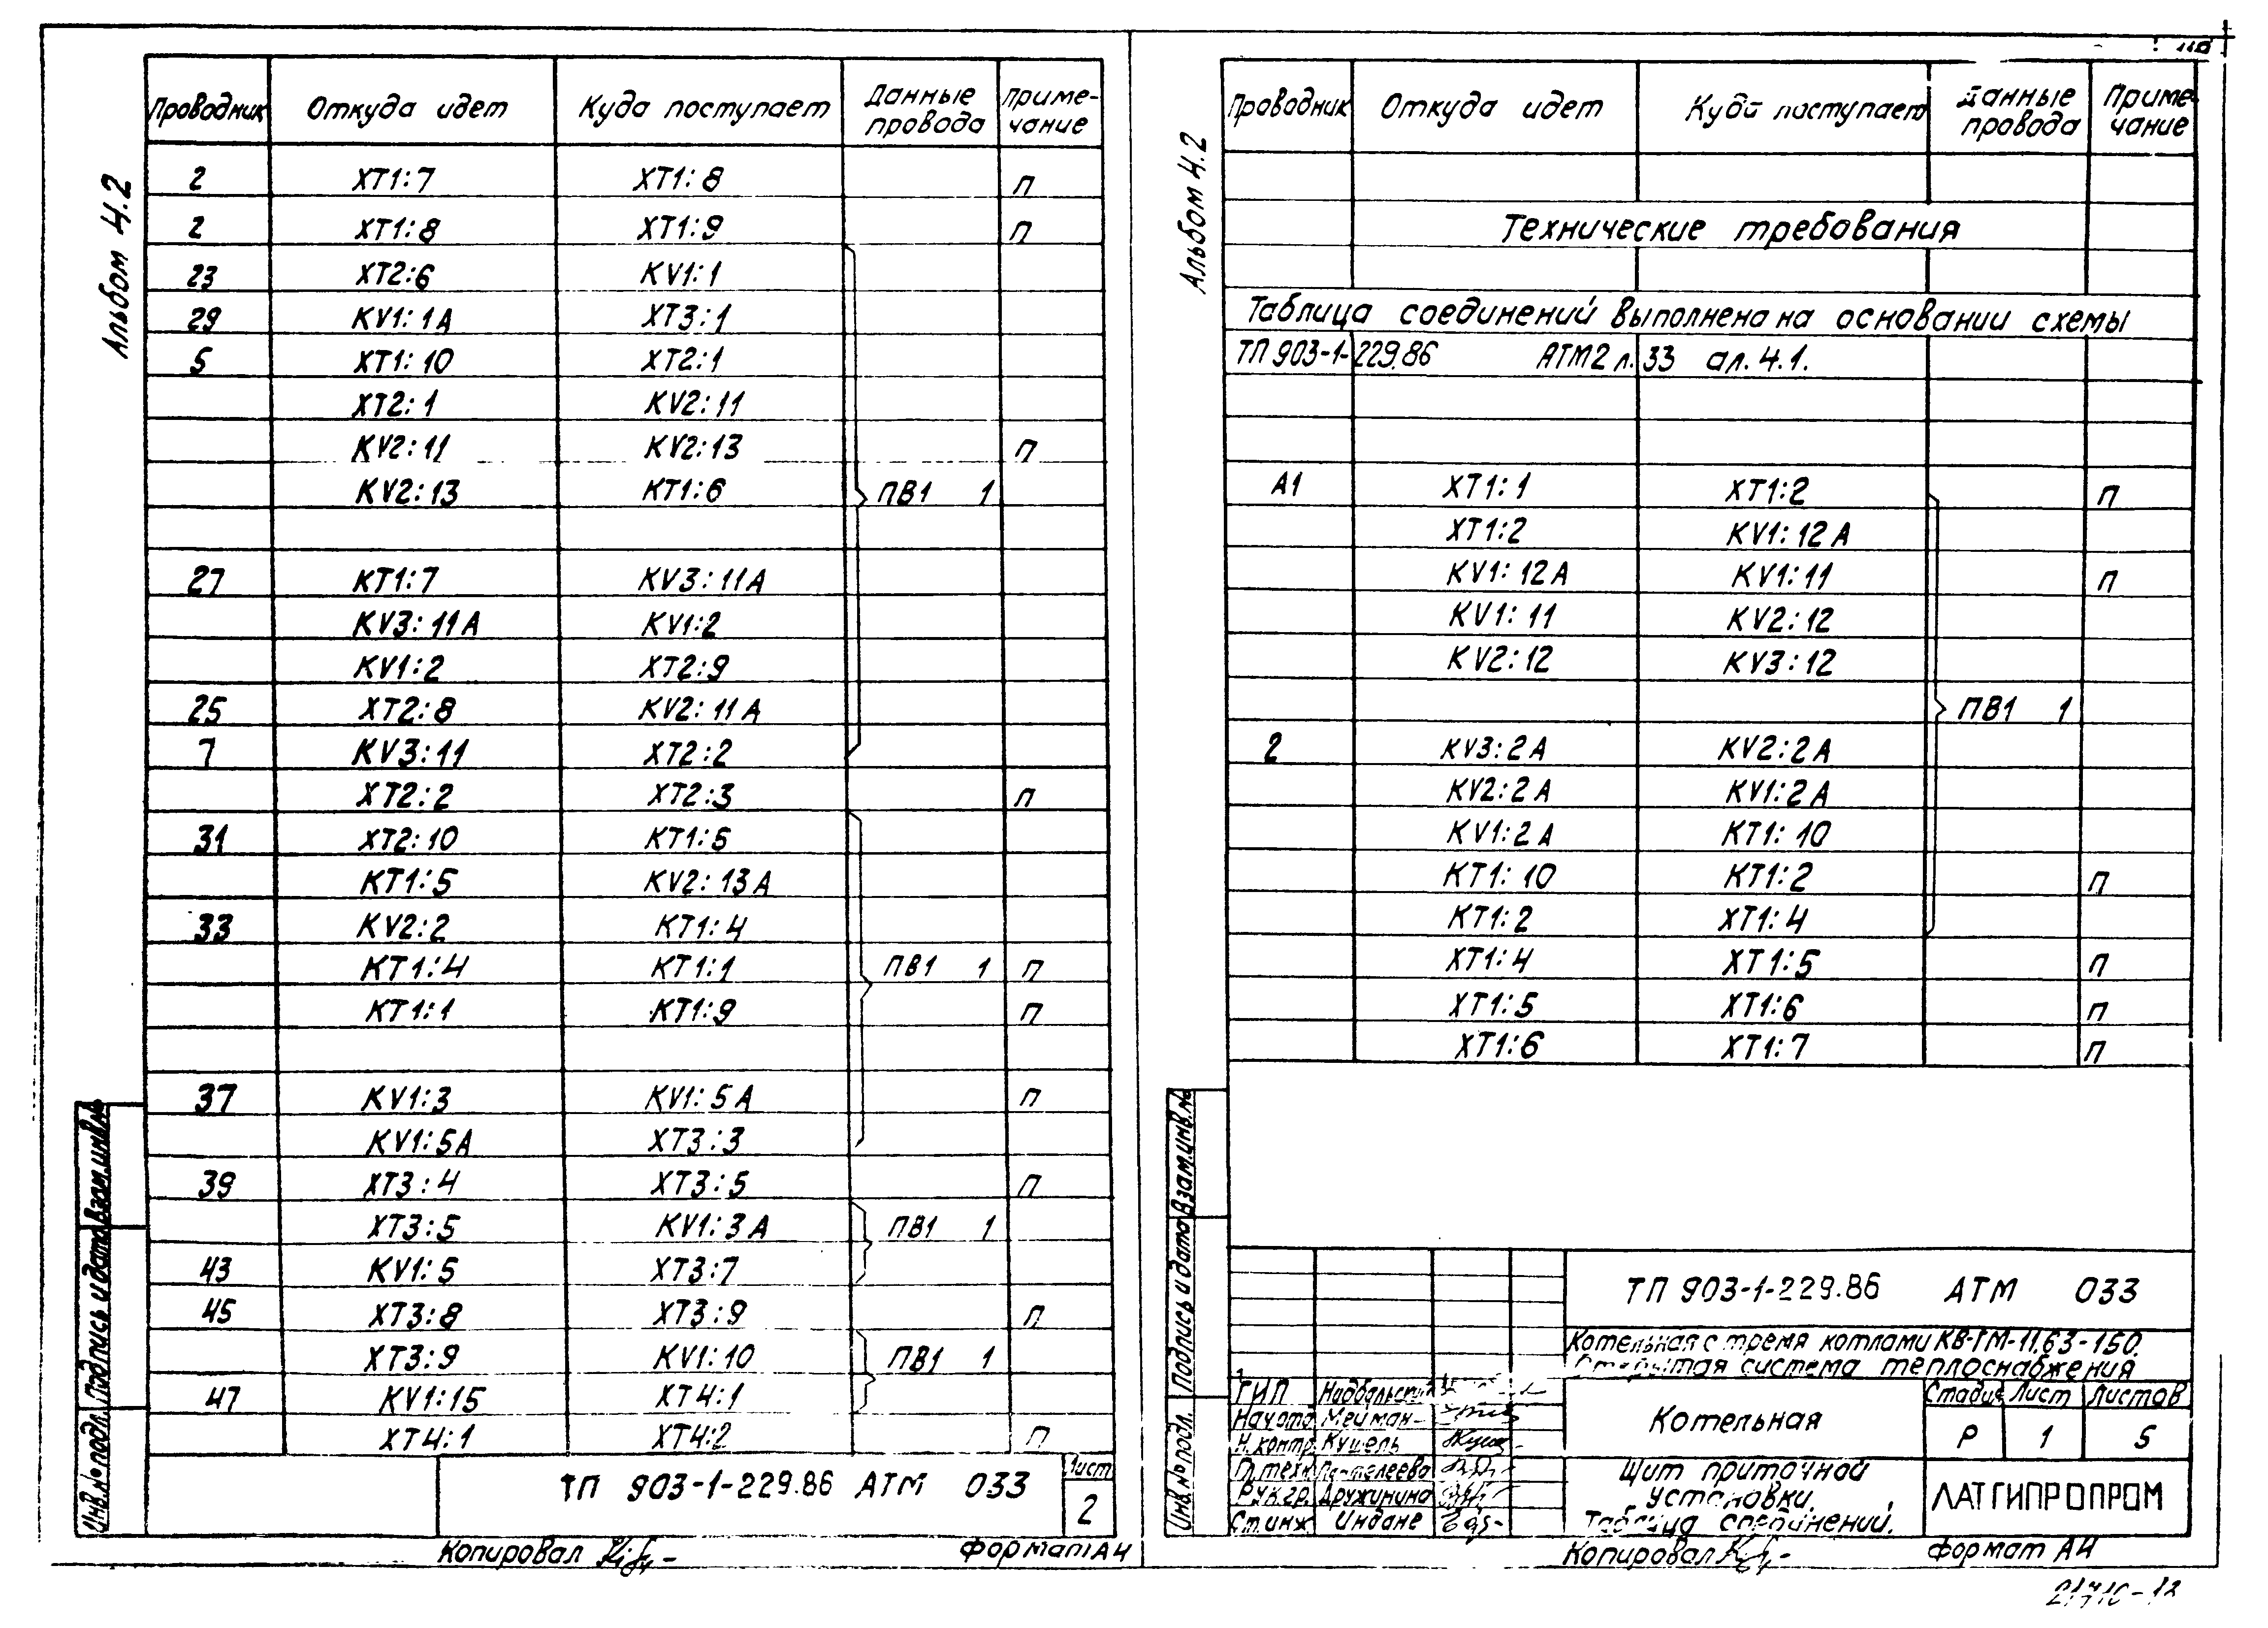 Альбом 4.2
Проводник Откуда идет Куда поступает Данные провода Примечание
2 XT1:7 XT1:8 П
2 XT1:8 XT1:9 П
23 XT2:6 KV1:1
29 KV1:1A XT3:1
5 XT1:10 XT2:1
XT2:1 KV2:11
KV2:11 KV2:13 П
KV2:13 KT1:6 ПВ1 1
27 KT1:7 KV3:11A
KV3:11A KV1:2
KV1:2 XT2:9
25 XT2:8 KV2:11A
7 KV3:11 XT2:2
XT2:2 XT2:3 П
31 XT2:10 KT1:5
KT1:5 KV2:13A
33 KV2:2 KT1:4
KT1:4 KT1:1 ПВ1 1 П
KT1:1 KT1:9 П
37 KV1:3 KV1:5A П
KV1:5A XT3:3
39 XT3:4 XT3:5 П
XT3:5 KV1:3A ПВ1 1
43 KV1:5 XT3:7
45 XT3:8 XT3:9 П
XT3:9 KV1:10 ПВ1 1
47 KV1:15 XT4:1
XT4:1 XT4:2 П
Инв.№подл. Подпись и дата Взам.инв.№
ТП 903-1-229.86 АТМ 033
Лист
2
Копировал
Формат А4
Альбом 4.2
Проводник Откуда идет Куда поступает Данные провода Примечание
Технические требования
Таблица соединений выполнена на основании схемы
ТП 903-1-229.86 АТМ2 л.33 ал.4.1.
A1 XT1:1 XT1:2 П
XT1:2 KV1:12A
KV1:12A KV1:11 П
KV1:11 KV2:12
KV2:12 KV3:12
ПВ1 1
2 KV3:2A KV2:2A
KV2:2A KV1:2A
KV1:2A KT1:10
KT1:10 KT1:2 П
KT1:2 XT1:4
XT1:4 XT1:5 П
XT1:5 XT1:6 П
XT1:6 XT1:7 П
Инв.№подл. Подпись и дата Взам.инв.№
ТП 903-1-229.86 АТМ 033
Котельная с тремя котлами КВ-ГМ-11,63-150.
Открытая система теплоснабжения
ГИП
Нач.отд. Мейман
Н.контр. Кушель
Гл.техн. Пантелеева
Рук.гр. Дружинина
Ст.инж Индане
Котельная
Стадия Лист Листов
Р 1 5
Щит приточной
установки.
Таблица соединений.
ЛАТГИПРОПРОМ
Копировал
Формат А4